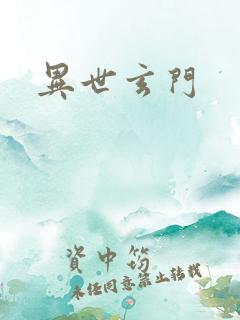 異世玄門
資中筠
未經同意禁止轉載